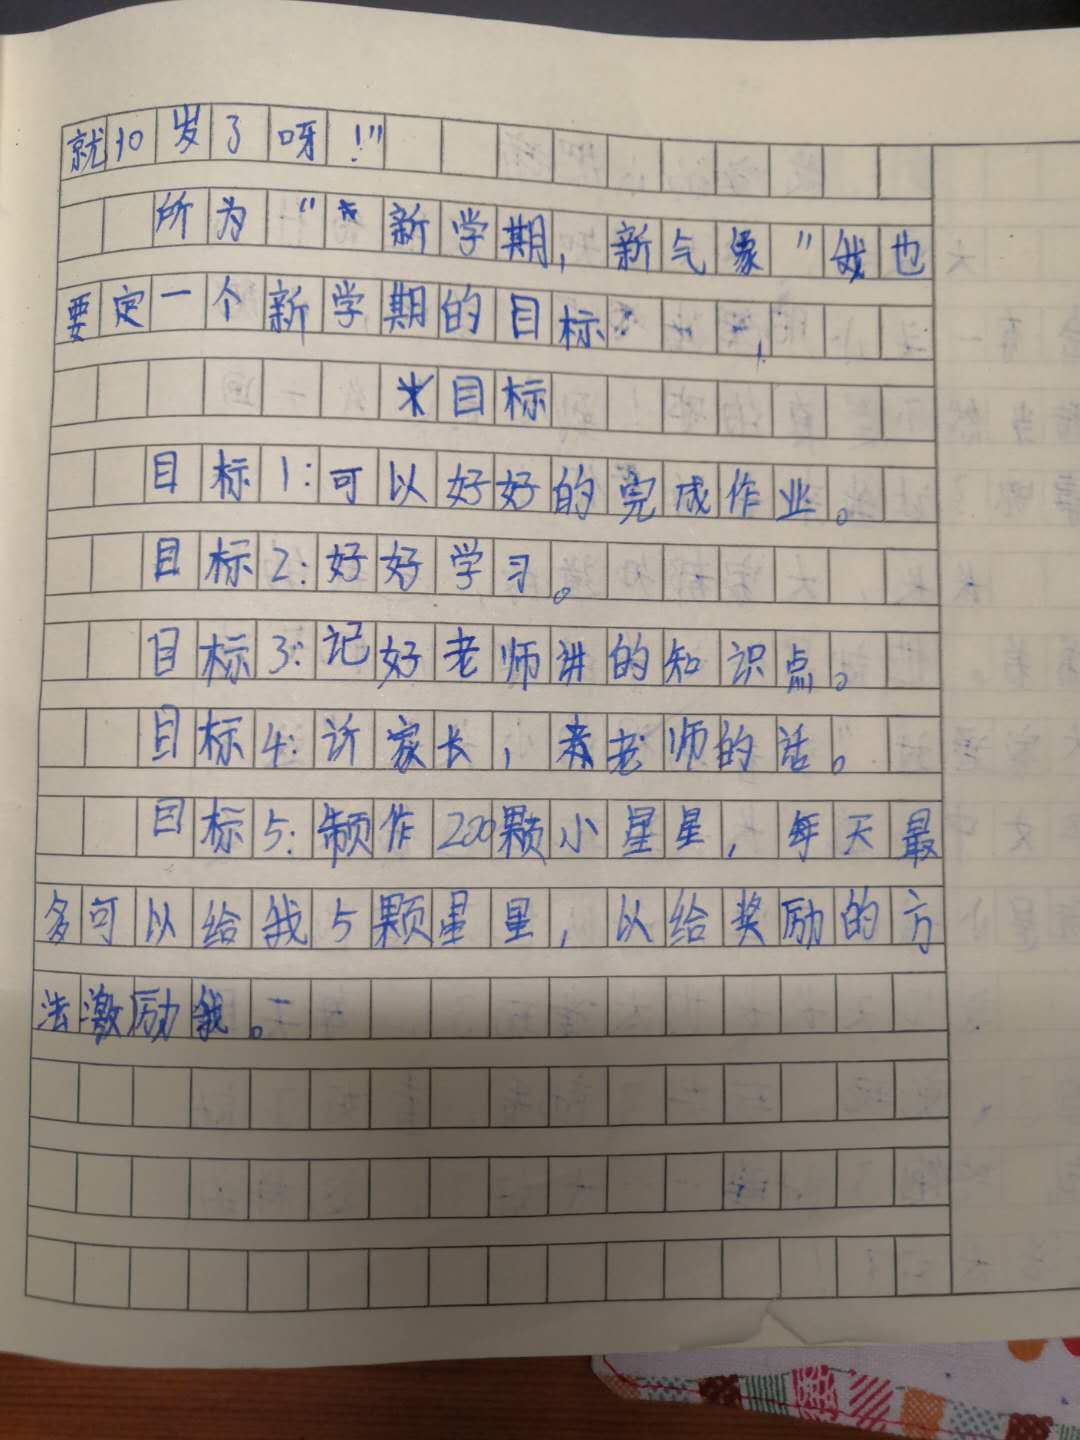 就10岁了呀!"
所为"新学期,新气象"我也
要定一个新学期的目标:
*目标
目标1:可以好好的完成作业。
目标2:好好学习。
目标3:记好老师讲的知识点。
目标4:许家长,老师的话。
目标5:制作200颗小星星,每天最
多可以给我5颗星星,以给奖励的方
法激励我。